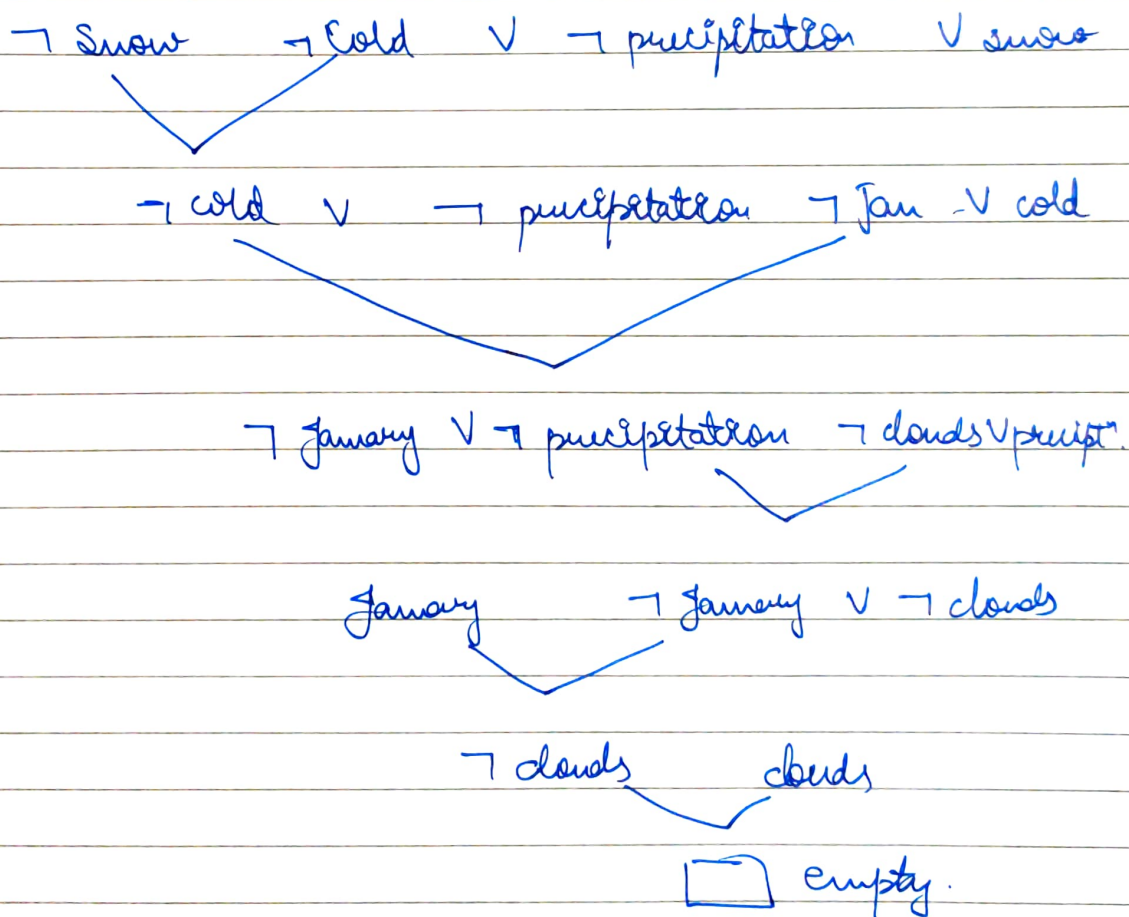 ¬ Snow ¬ Cold ∨ ¬ precipitation ∨ snow
¬ cold ∨ ¬ precipitation ¬ Jan ∨ cold
¬ January ∨ ¬ precipitation ¬ clouds ∨ precipt<sup>n</sup>.
January ¬ January ∨ ¬ clouds
¬ clouds clouds
empty.